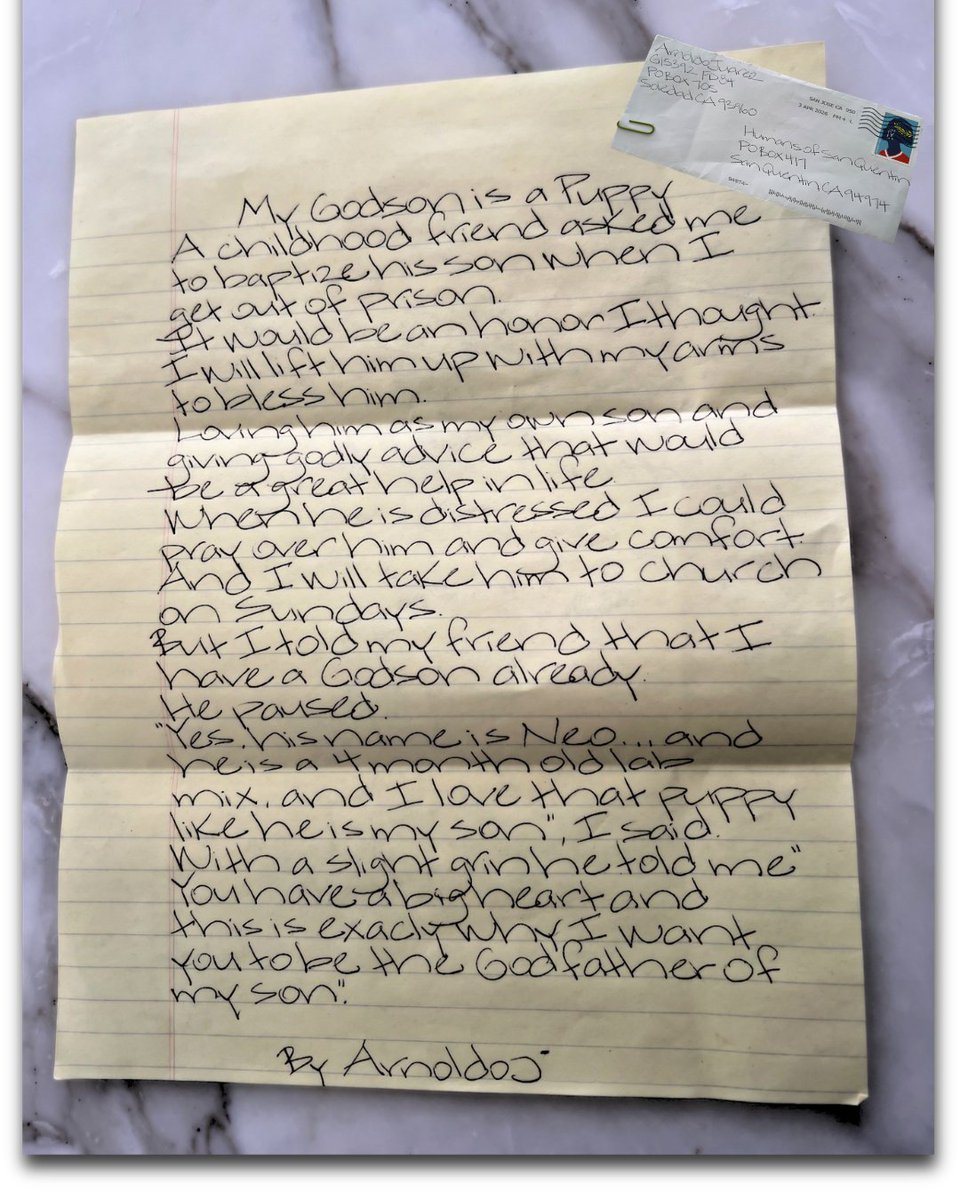 Arnoldo Juarez
G15392 FD84
PO BOX-705
Soledad CA 93960
SAN JOSE CA 950
3 APR 2026 PM 4 L
Humans of San Quentin
PO BOX 417
San Quentin CA 94974
My Godson is a Puppy
A childhood friend asked me
to baptize his son when I
get out of prison.
It would be an honor I thought.
I will lift him up with my arms
to bless him.
Loving him as my own son and
giving godly advice that would
be a great help in life.
When he is distressed I could
pray over him and give comfort.
And I will take him to church
on Sundays.
But I told my friend that I
have a Godson already.
He paused.
"Yes, his name is Neo... and
he is a 4 month old lab
mix, and I love that puppy
like he is my son", I said.
With a slight grin he told me"
You have a big heart and
this is exacly why I want
you to be the Godfather of
my son".
By Arnoldo J